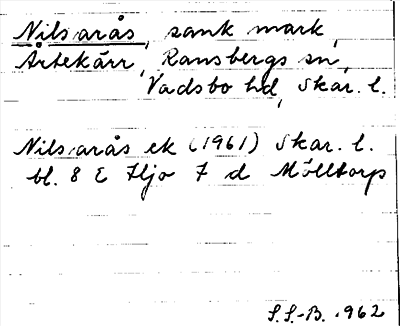 Nilsarås, sank mark,
Årtekärr, Ransbergs sn,
Vadsbo hd, Skar. l.
Nilsarås ek (1961) Skar. l.
bl. 8 E Hjo 7 d Mölltorp
S.S-B. 1962